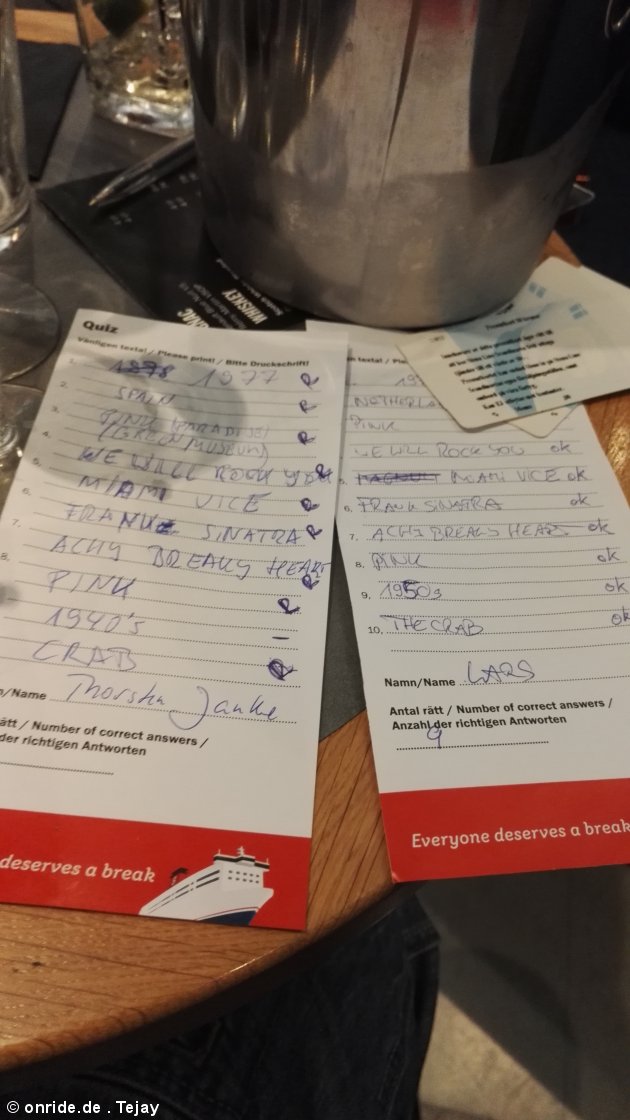 Quiz
Vänligen texta! / Please print! / Bitte Druckschrift!
1. 1978 1977 R
2. SPAIN R
3. PINK (PARADISE) R
4. (GREEN MUSEUM)
WE WILL ROCK YOU R
5. MIAMI VICE R
6. FRANK SINATRA R
7. ACHY BREAKY HEART R
8. PINK R
1940's –
CRAB R
n/Name Thorsten Janke
ätt / Number of correct answers /
der richtigen Antworten
deserves a break
WHISKEY
n texta! / Ple
NETHERLA
PINK
WE WILL ROCK YOU ok
5. MIAMI VICE ok
6. FRANK SINATRA ok
7. ACHY BREAKY HEART ok
8. PINK ok
9. 1950s ok
10. THE CRAB ok
Namn/Name LARS
Antal rätt / Number of correct answers /
Anzahl der richtigen Antworten
9
Everyone deserves a break
© onride.de . Tejay